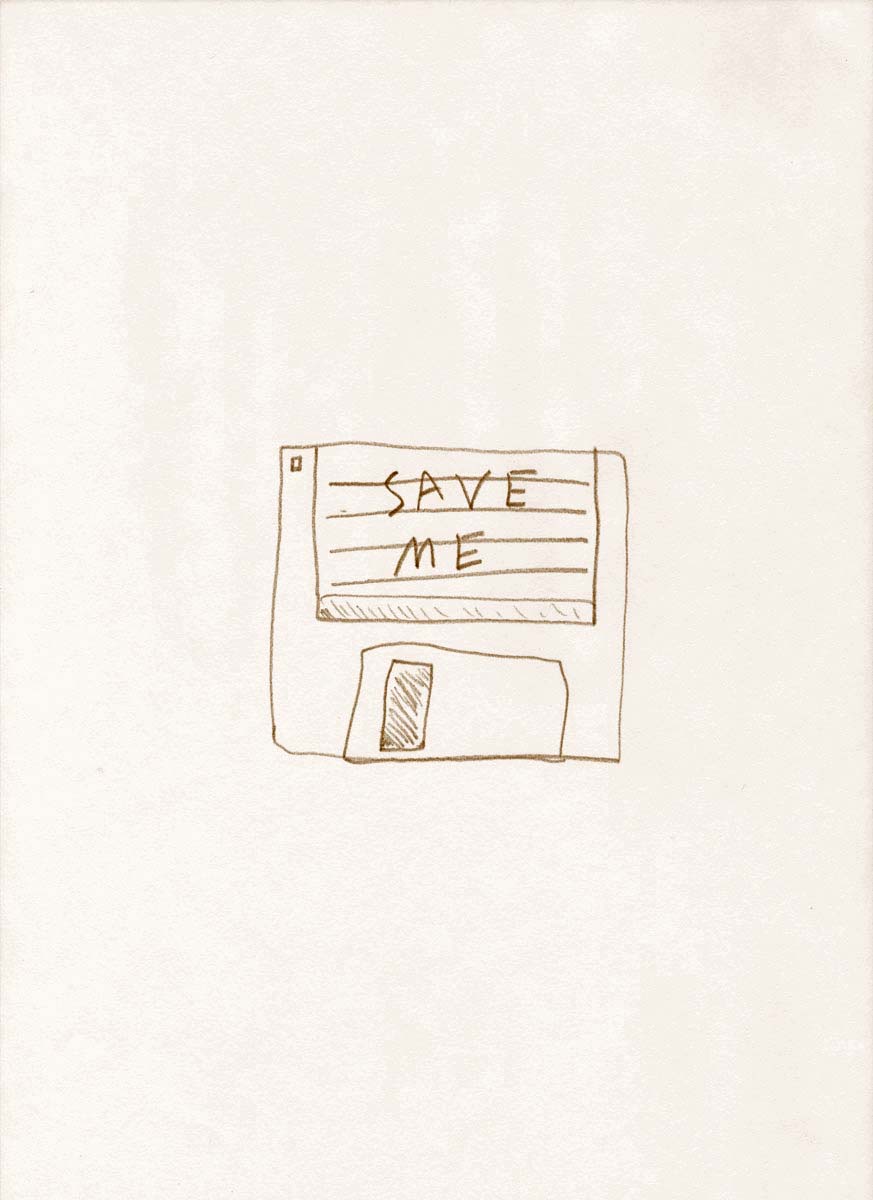 SAVE
ME